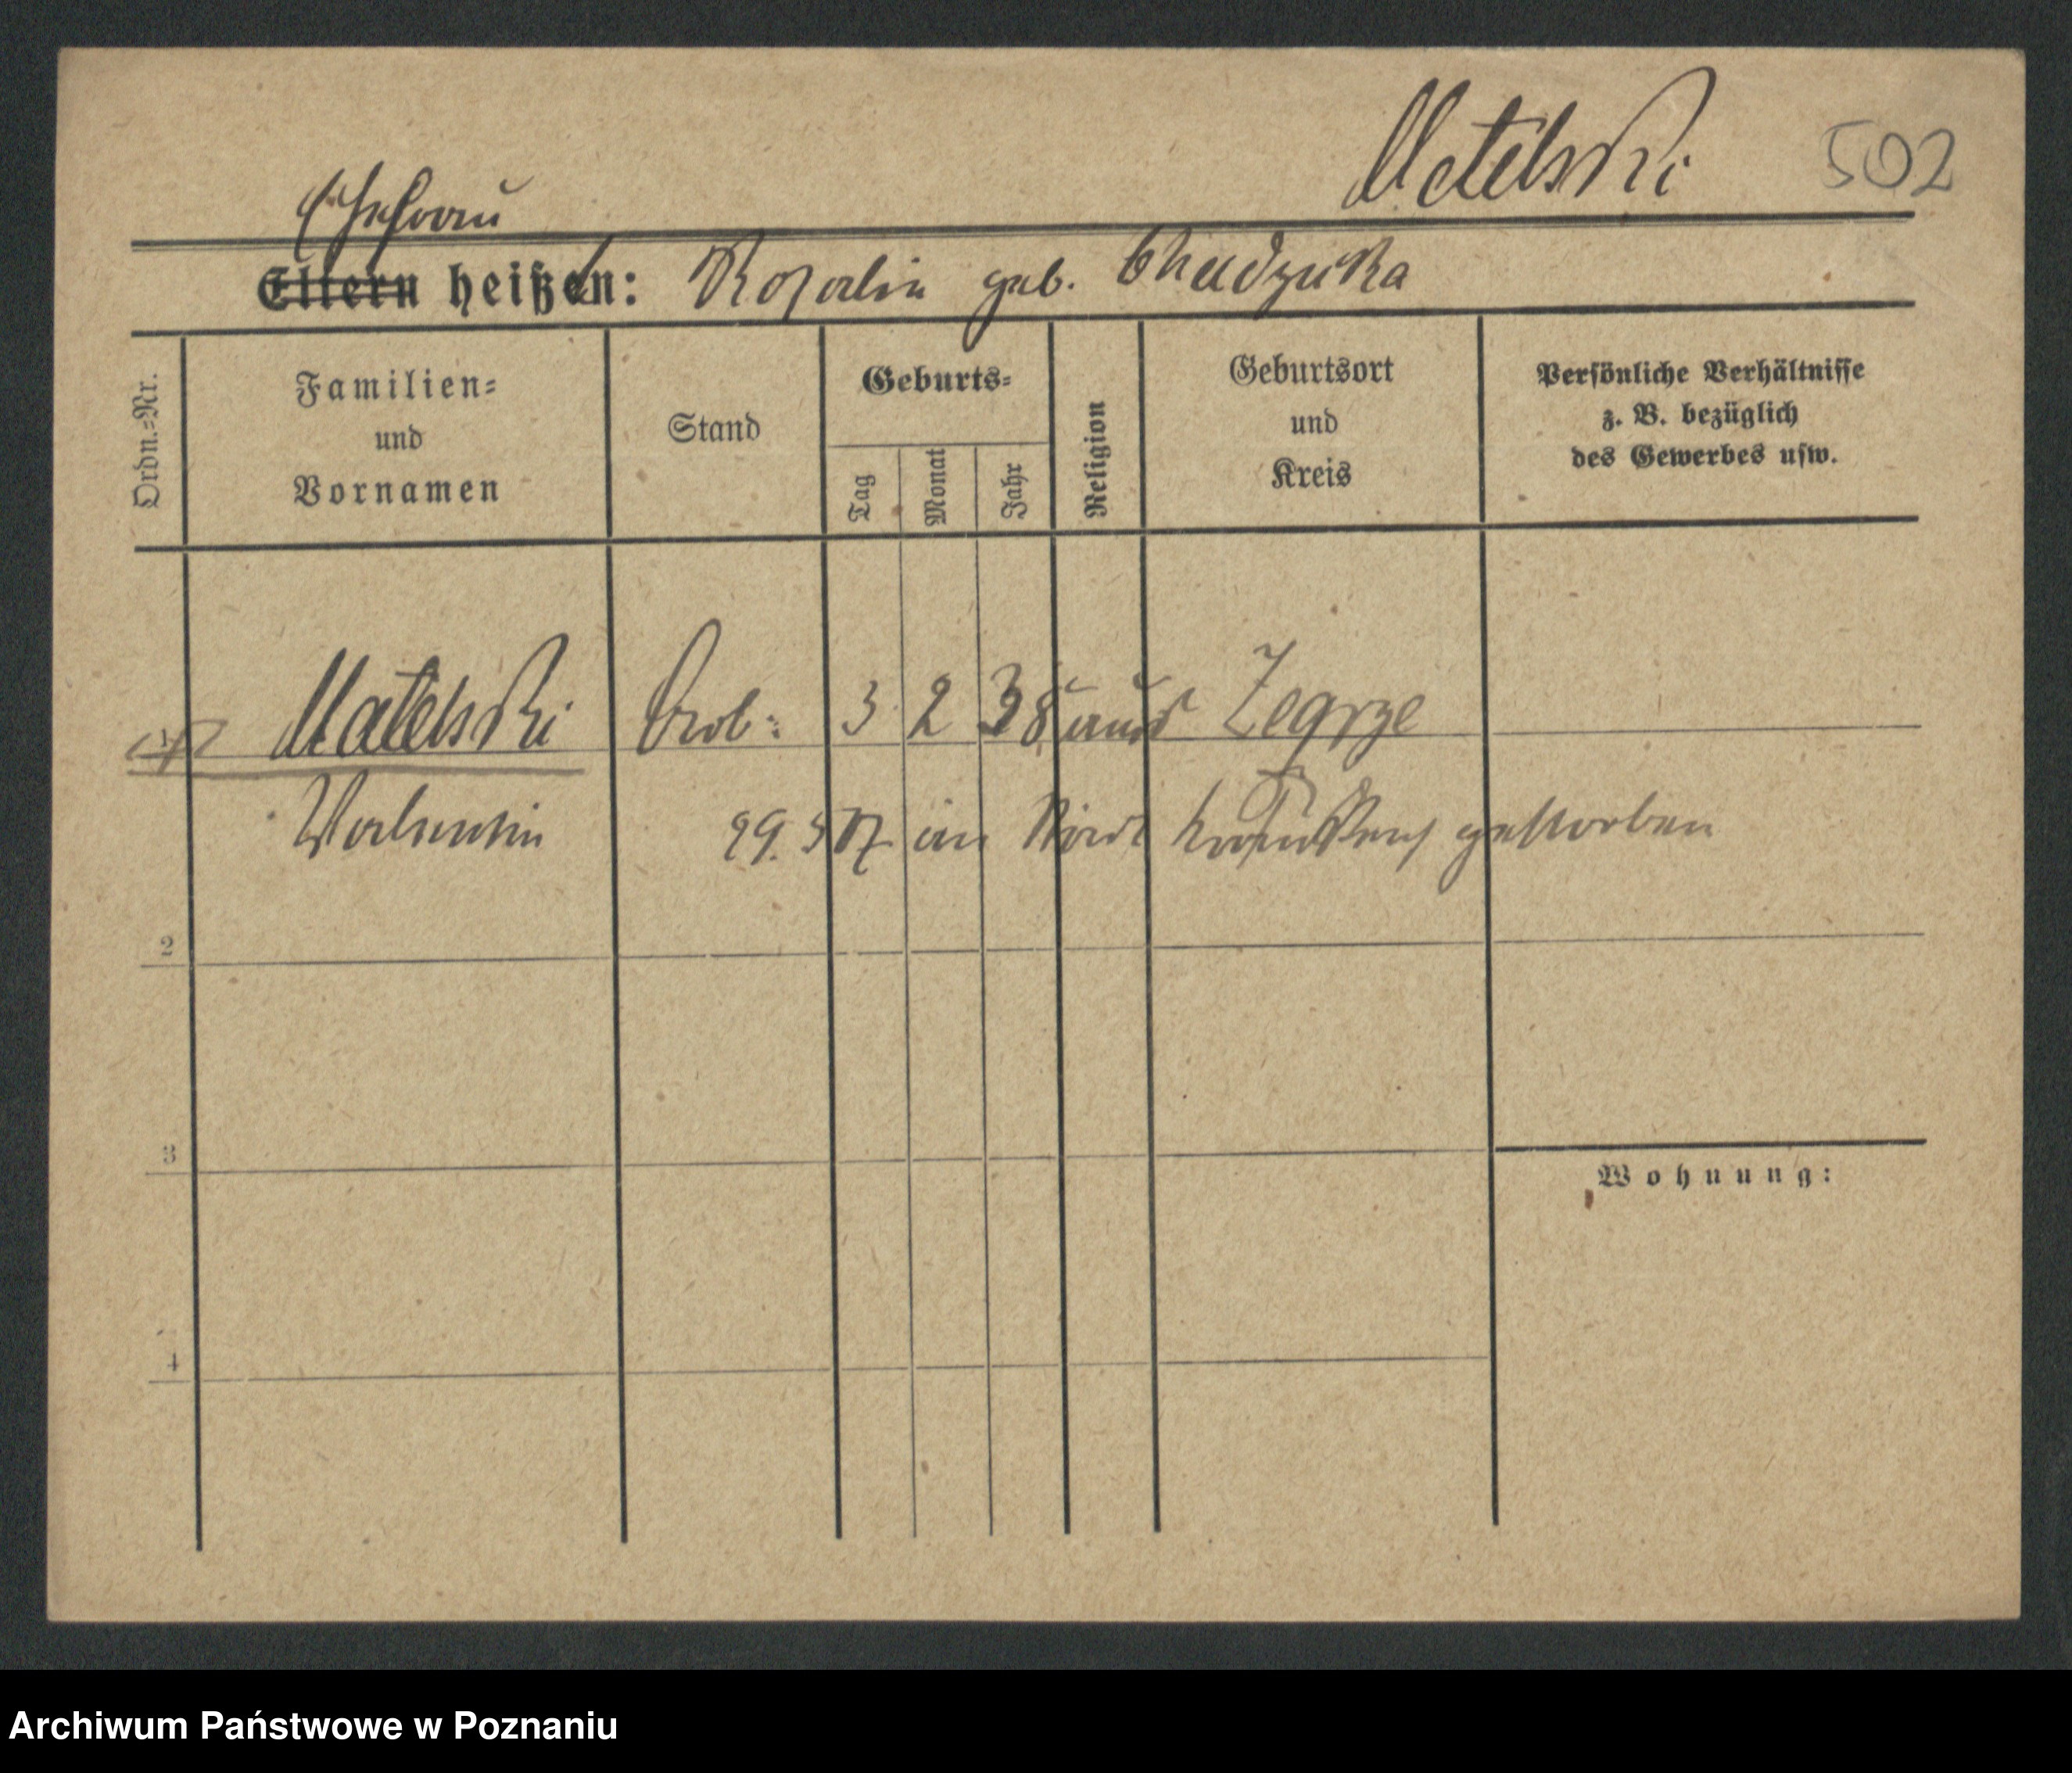 Metelski 502
Ehefrau
Eltern heißen: Rosalie geb. Chudzicka
Ordn.=Nr.
Familien=
und
Vornamen
Stand
Geburts=
Tag
Monat
Jahr
Religion
Geburtsort
und
Kreis
Persönliche Verhältnisse
z. B. bezüglich
des Gewerbes usw.
Matelski Arb: 3 2 38 aus Zegrze
Valentin 29. 5 17 im Krankenhaus gestorben
2
3
Wohnung:
4
Archiwum Państwowe w Poznaniu